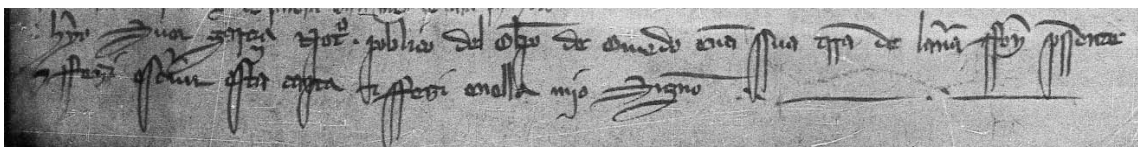 hyo Suer garcia Notº. publico del obpo de ouiedo ena ssua trra de lana ffoy pssente
⁊ ffezi escriuir esta carta ⁊ ffezi enella mjo Signo